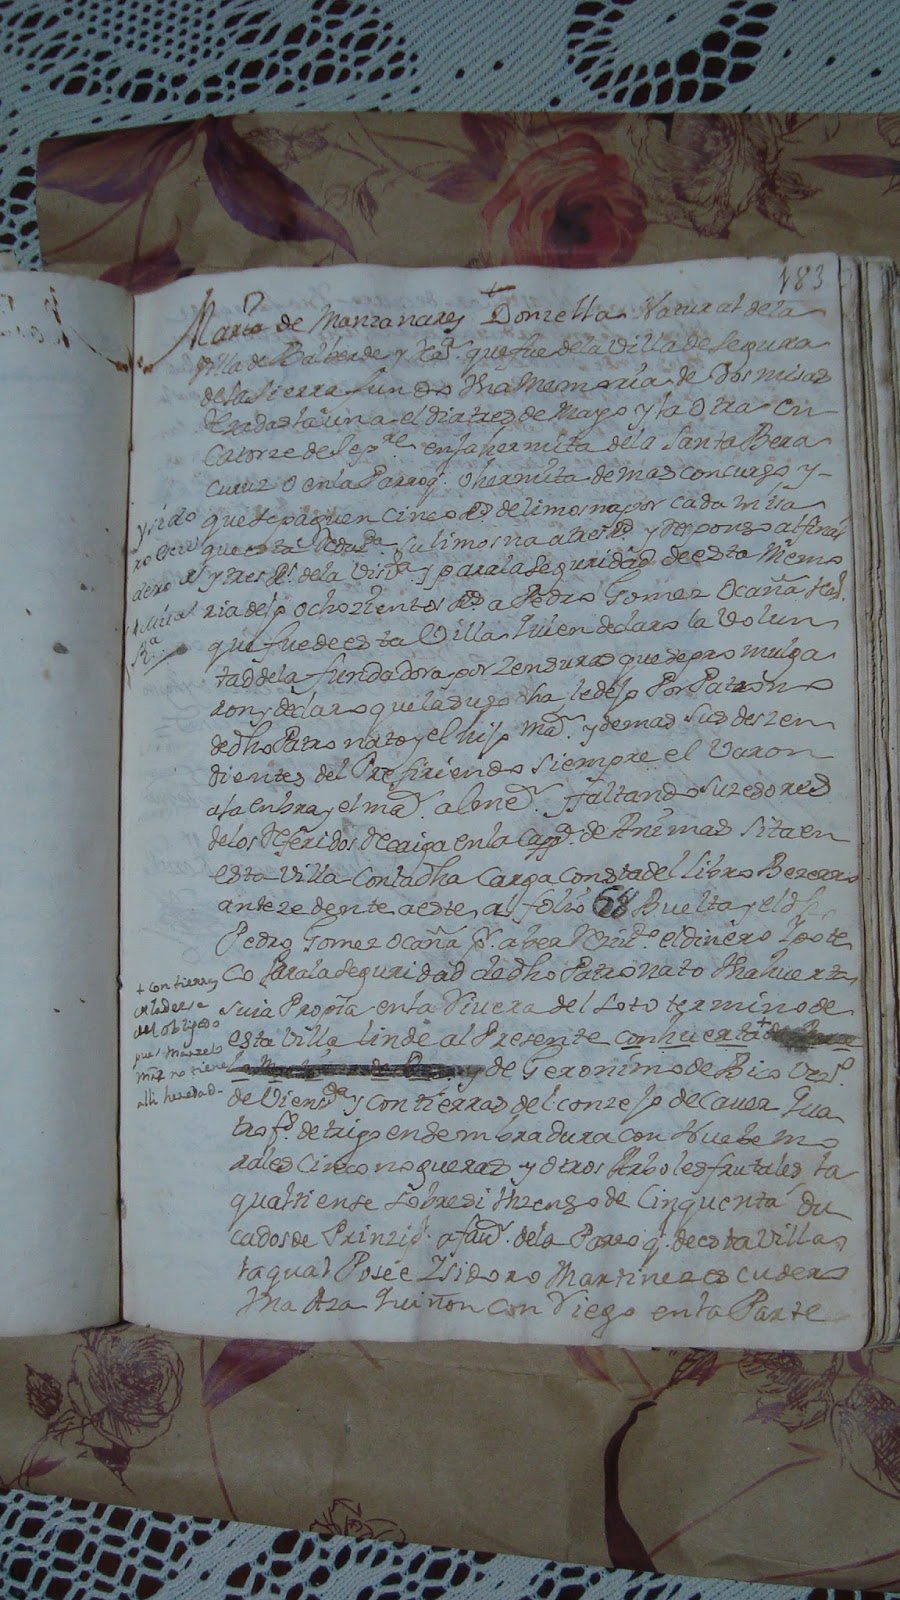 183
Maria de Manzanares Donzella Natural dela
Villa de Balberde y que fue dela Villa de Segura
dela Sierra fundo Vna Memoria de Dos misas
Rezadas la una el dia tres de Mayo y la Otra en
Catorze de Sepre. en la hermita dela Santa Bera
Cruz O en la Parroq. O hermita de mas concurso y
que se paguen cinco Rs. de limosna por cada misa
que su limosna a tres Rs. y
y tres Rs. de la Vista. y para la seguridad de esta Memo
ria dejo ochozientos Rs. a Pedro Gomez Ocaña
que fue de esta Villa Quien declaro la volun
tad dela fundadora por Zensuras que se promulga
ron y declaro que la susodha le dejo Por Patrono
de dho Patronato y el hijo mar. y demas sus deszen
dientes del Prefiriendo siempre el Varon
a la enbra y el mar. al mer. Y faltando suzesores
de los Referidos Recaiga en la Capa. de Animas sita en
esta Villa Con la dha Carga Consta del Libro Bezerro
antezedente a este al folio 68 Buelta y el dho
Pedro Gomez Ocaña Pr. aber el dinero Ipote
co Para la seguridad de dho Patronato Vna huerta
suia Propia en la Rivera del Soto termino de
esta Villa linde al Presente con huerta +
y de Geronimo de Bico Vezo.
de Vienda y con tierras del conzejo de Caver Qua
tro fs. de trigo en sembradura con Nuebe mo
rales Cinco nogueras y otros Arboles frutales la
qual tiene sobre si Vn Zenso de Cinquenta du
cados de Prinzipl. a faur. dela Parroq. de esta Villa
la qual Posée Ysidoro Martinez escudero
Vna Aza Quiñon con Riego en la Parte
Ysido
ro Escu
dero
+ con tierras
en ladera
del Obligado
pues Marzelo
Mrz no tiene
alli heredad